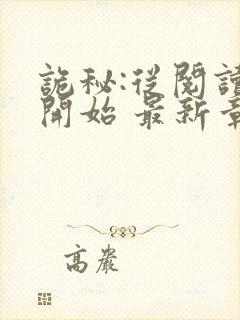 詭秘:從閱讀
開始 最新章
高嚴